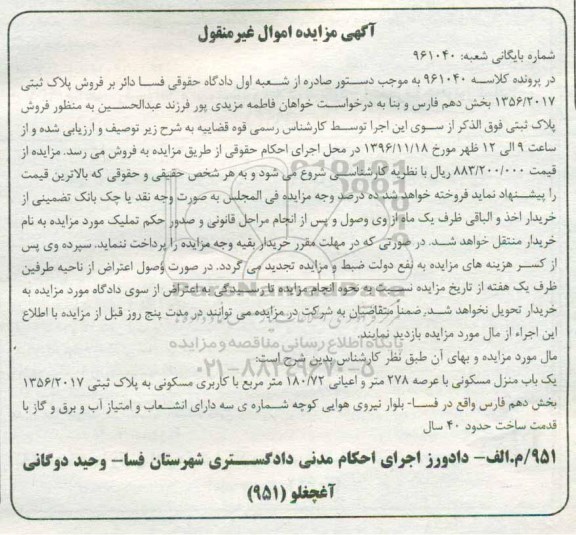 آگهی مزایده اموال غیرمنقول
شماره بایگانی شعبه: ۹۶۱۰۴۰
در پرونده کلاسه ۹۶۱۰۴۰ به موجب دستور صادره از شعبه اول دادگاه حقوقی فسا دائر بر فروش پلاک ثبتی
۱۳۵۶/۲۰۱۷ بخش دهم فارس و بنا به درخواست خواهان فاطمه مزیدی پور فرزند عبدالحسین به منظور فروش
پلاک ثبتی فوق الذکر از سوی این اجرا توسط کارشناس رسمی قوه قضاییه به شرح زیر توصیف و ارزیابی شده و از
ساعت ۹ الی ۱۲ ظهر مورخ ۱۳۹۶/۱۱/۱۸ در محل اجرای احکام حقوقی از طریق مزایده به فروش می رسد. مزایده از
قیمت ۸۸۳/۲۰۰/۰۰۰ ریال با نظریه کارشناسی شروع می شود و به هر شخص حقیقی و حقوقی که بالاترین قیمت
را پیشنهاد نماید فروخته خواهد شد ده درصد وجه مزایده فی المجلس به صورت وجه نقد یا چک بانک تضمینی از
خریدار اخذ و الباقی ظرف یک ماه از وی وصول و پس از انجام مراحل قانونی و صدور حکم تملیک مورد مزایده به نام
خریدار منتقل خواهد شد. در صورتی که در مهلت مقرر خریدار بقیه وجه مزایده را پرداخت ننماید. سپرده وی پس
از کسر هزینه های مزایده به نفع دولت ضبط و مزایده تجدید می گردد. در صورت وصول اعتراض از ناحیه طرفین
ظرف یک هفته از تاریخ مزایده نسبت به نحوه انجام مزایده تا رسیدگی به اعتراض از سوی دادگاه مورد مزایده به
خریدار تحویل نخواهد شد. ضمناً متقاضیان به شرکت در مزایده می توانند در مدت پنج روز قبل از مزایده با اطلاع
این اجراء از مال مورد مزایده بازدید نمایند.
پایگاه اطلاع رسانی مناقصه و مزایده
مال مورد مزایده و بهای آن طبق نظر کارشناس بدین شرح است:
۰۲۱-۸۸۳۴۹۶۷۰-۵
یک باب منزل مسکونی با عرصه ۲۷۸ متر و اعیانی ۱۸۰/۷۲ متر مربع با کاربری مسکونی به پلاک ثبتی ۱۳۵۶/۲۰۱۷
بخش دهم فارس واقع در فسا- بلوار نیروی هوایی کوچه شماره ی سه دارای انشعاب و امتیاز آب و برق و گاز با
قدمت ساخت حدود ۴۰ سال
۹۵۱/م.الف- دادورز اجرای احکام مدنی دادگستری شهرستان فسا- وحید دوگانی
آغچغلو (۹۵۱)